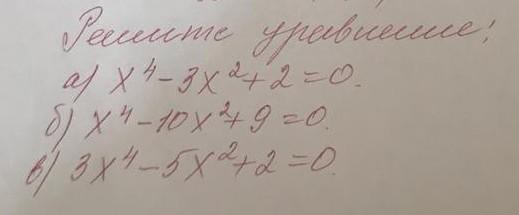 Решите уравнение:
а) x⁴-3x²+2=0.
б) x⁴-10x²+9=0.
в) 3x⁴-5x²+2=0.